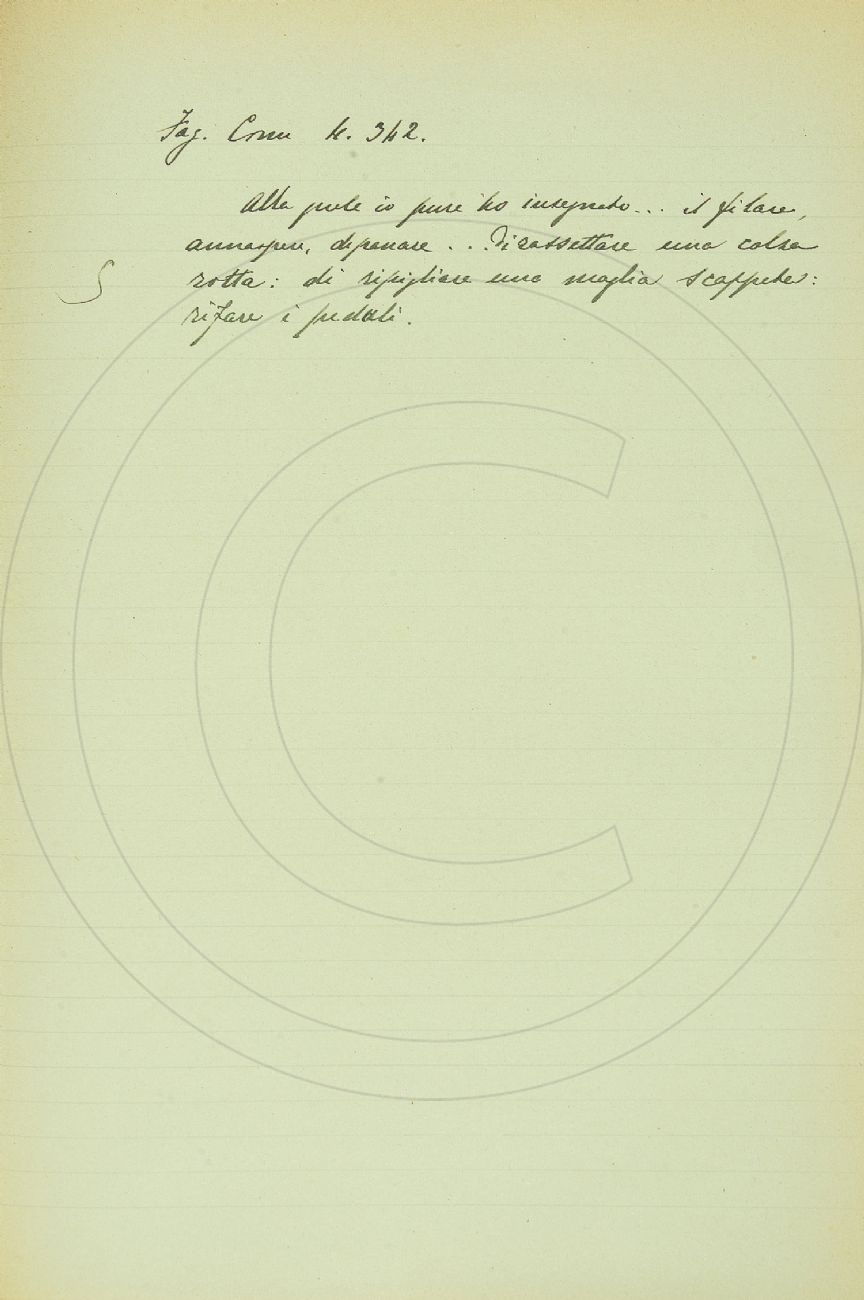 Fag. Comm 4. 342.
Alla prole io pure ho insegnato... il filare,
annaspare, dipanare... Di rassettare una calza
rotta: di ripigliare una maglia scappata:
rifare i pedali.